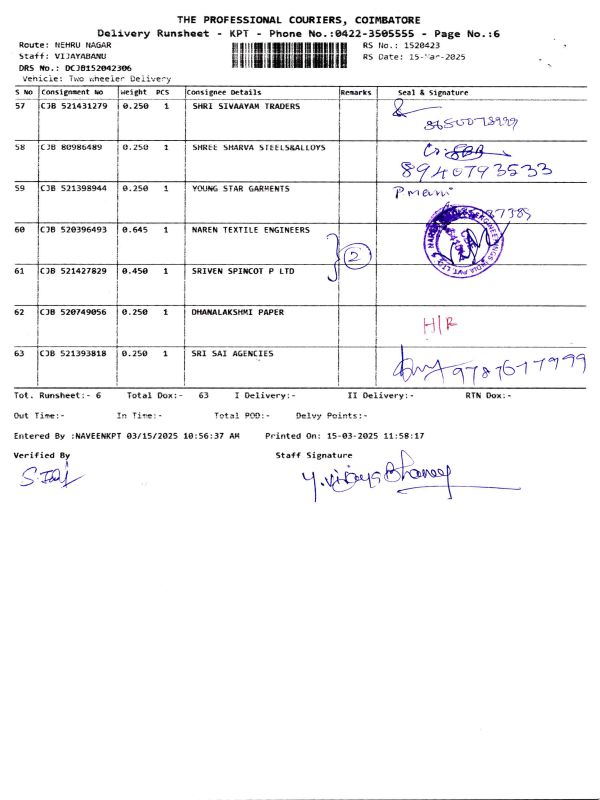 THE PROFESSIONAL COURIERS, COIMBATORE
Delivery Runsheet - KPT - Phone No.:0422-3505555 - Page No.:6
Route: NEHRU NAGAR RS No.: 1520423
Staff: VIJAYABANU RS Date: 15-Mar-2025
DRS No.: DCJB152042306
Vehicle: Two Wheeler Delivery
S No Consignment No Weight PCS Consignee Details Remarks Seal & Signature
57 CJB 521431279 0.250 1 SHRI SIVAAYAM TRADERS
58 CJB 80986489 0.250 1 SHREE SHARVA STEELS&ALLOYS
8940793533
59 CJB 521398944 0.250 1 YOUNG STAR GARMENTS P mani
60 CJB 520396493 0.645 1 NAREN TEXTILE ENGINEERS
2
61 CJB 521427829 0.450 1 SRIVEN SPINCOT P LTD
62 CJB 520749056 0.250 1 DHANALAKSHMI PAPER
H/R
63 CJB 521393818 0.250 1 SRI SAI AGENCIES
Tot. Runsheet:- 6 Total Dox:- 63 I Delivery:- II Delivery:- RTN Dox:-
Out Time:- In Time:- Total POD:- Delvy Points:-
Entered By :NAVEENKPT 03/15/2025 10:56:37 AM Printed On: 15-03-2025 11:58:17
Verified By Staff Signature
Y.VijayaBhanu